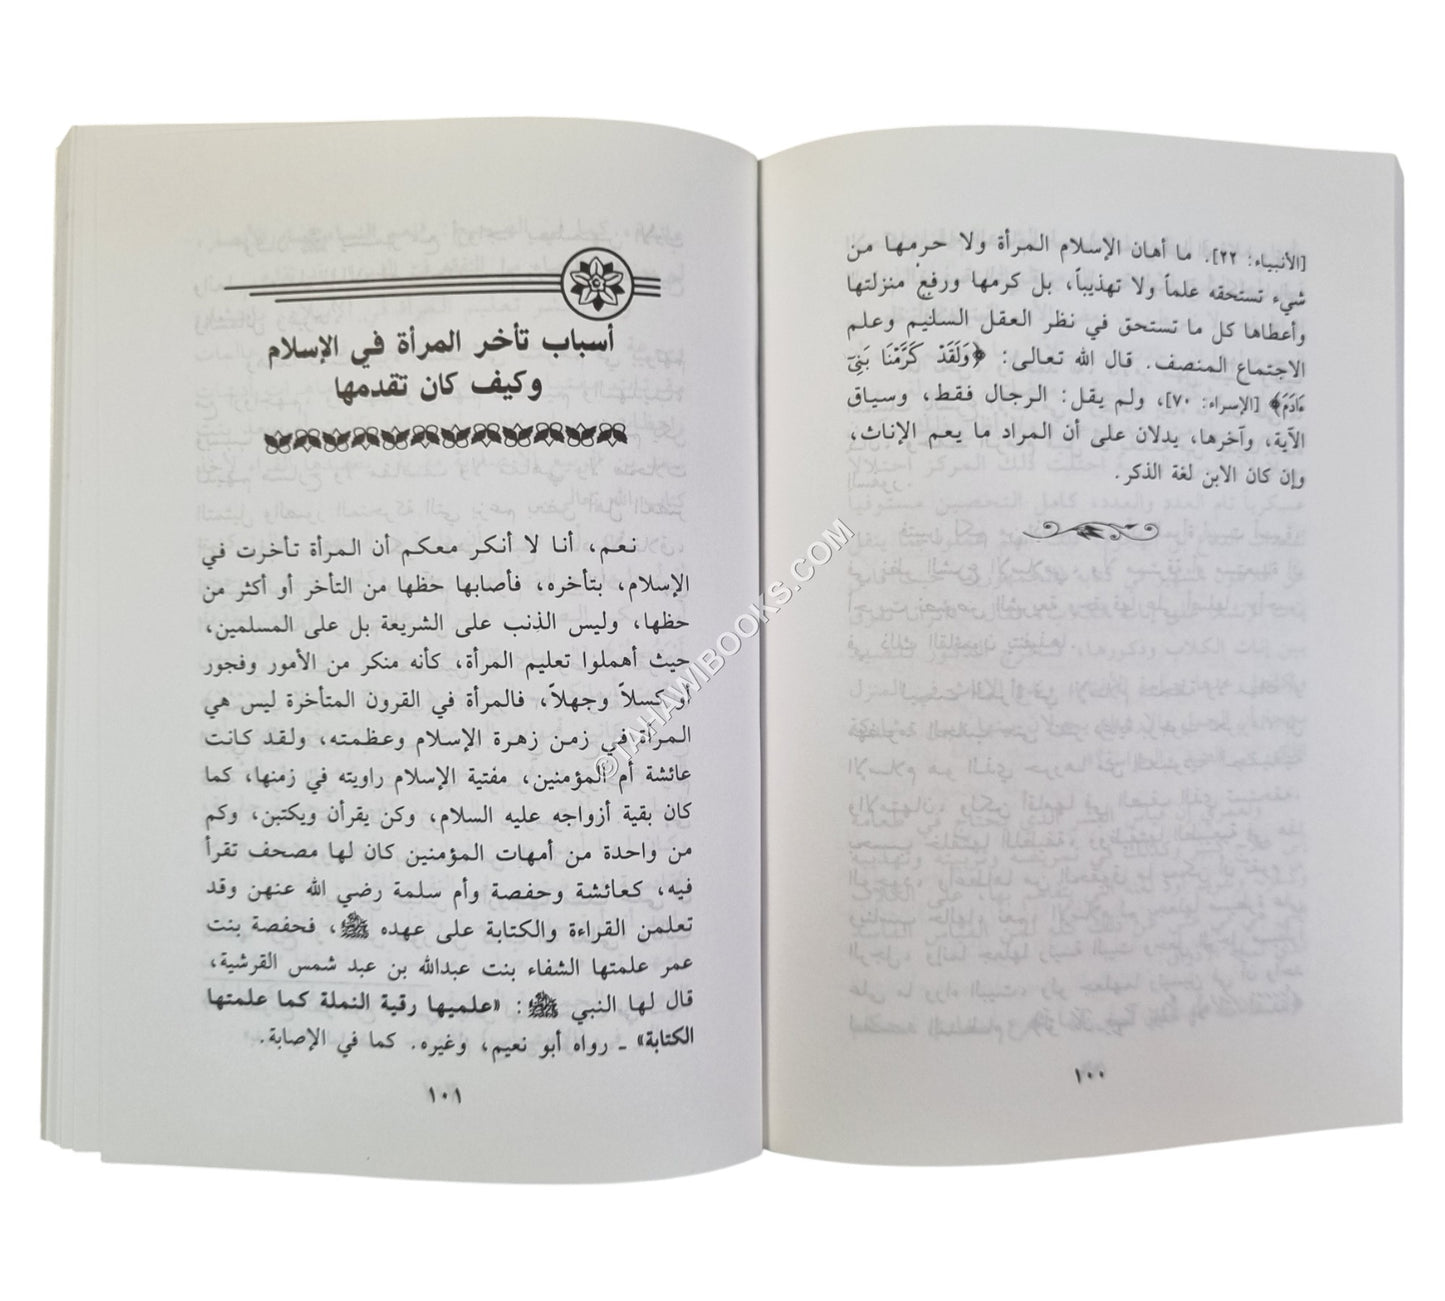 [الأنبياء: ٢٢]. ما أهان الإسلام المرأة ولا حرمها من
شيء تستحقه علماً ولا تهذيباً، بل كرمها ورفع منزلتها
وأعطاها كل ما تستحق في نظر العقل السليم وعلم
الاجتماع المنصف. قال الله تعالى: ﴿وَلَقَدْ كَرَّمْنَا بَنِىٓ
ءَادَمَ﴾ [الإسراء: ٧٠]، ولم يقل: الرجال فقط، وسياق
الآية، وآخرها، يدلان على أن المراد ما يعم الإناث،
وإن كان الابن لغة الذكر.
١٠٠
أسباب تأخر المرأة في الإسلام
وكيف كان تقدمها
نعم، أنا لا أنكر معكم أن المرأة تأخرت في
الإسلام، بتأخره، فأصابها حظها من التأخر أو أكثر من
حظها، وليس الذنب على الشريعة بل على المسلمين،
حيث أهملوا تعليم المرأة، كأنه منكر من الأمور وفجور
أو كسلاً وجهلاً، فالمرأة في القرون المتأخرة ليس هي
المرأة في زمن زهرة الإسلام وعظمته، ولقد كانت
عائشة أم المؤمنين، مفتية الإسلام راويته في زمنها، كما
كان بقية أزواجه عليه السلام، وكن يقرأن ويكتبن، وكم
من واحدة من أمهات المؤمنين كان لها مصحف تقرأ
فيه، كعائشة وحفصة وأم سلمة رضي الله عنهن وقد
تعلمن القراءة والكتابة على عهده ﷺ، فحفصة بنت
عمر علمتها الشفاء بنت عبدالله بن عبد شمس القرشية،
قال لها النبي ﷺ: «علميها رقية النملة كما علمتها
الكتابة» ـ رواه أبو نعيم، وغيره. كما في الإصابة.
١٠١
©TAHAWIBOOKS.COM